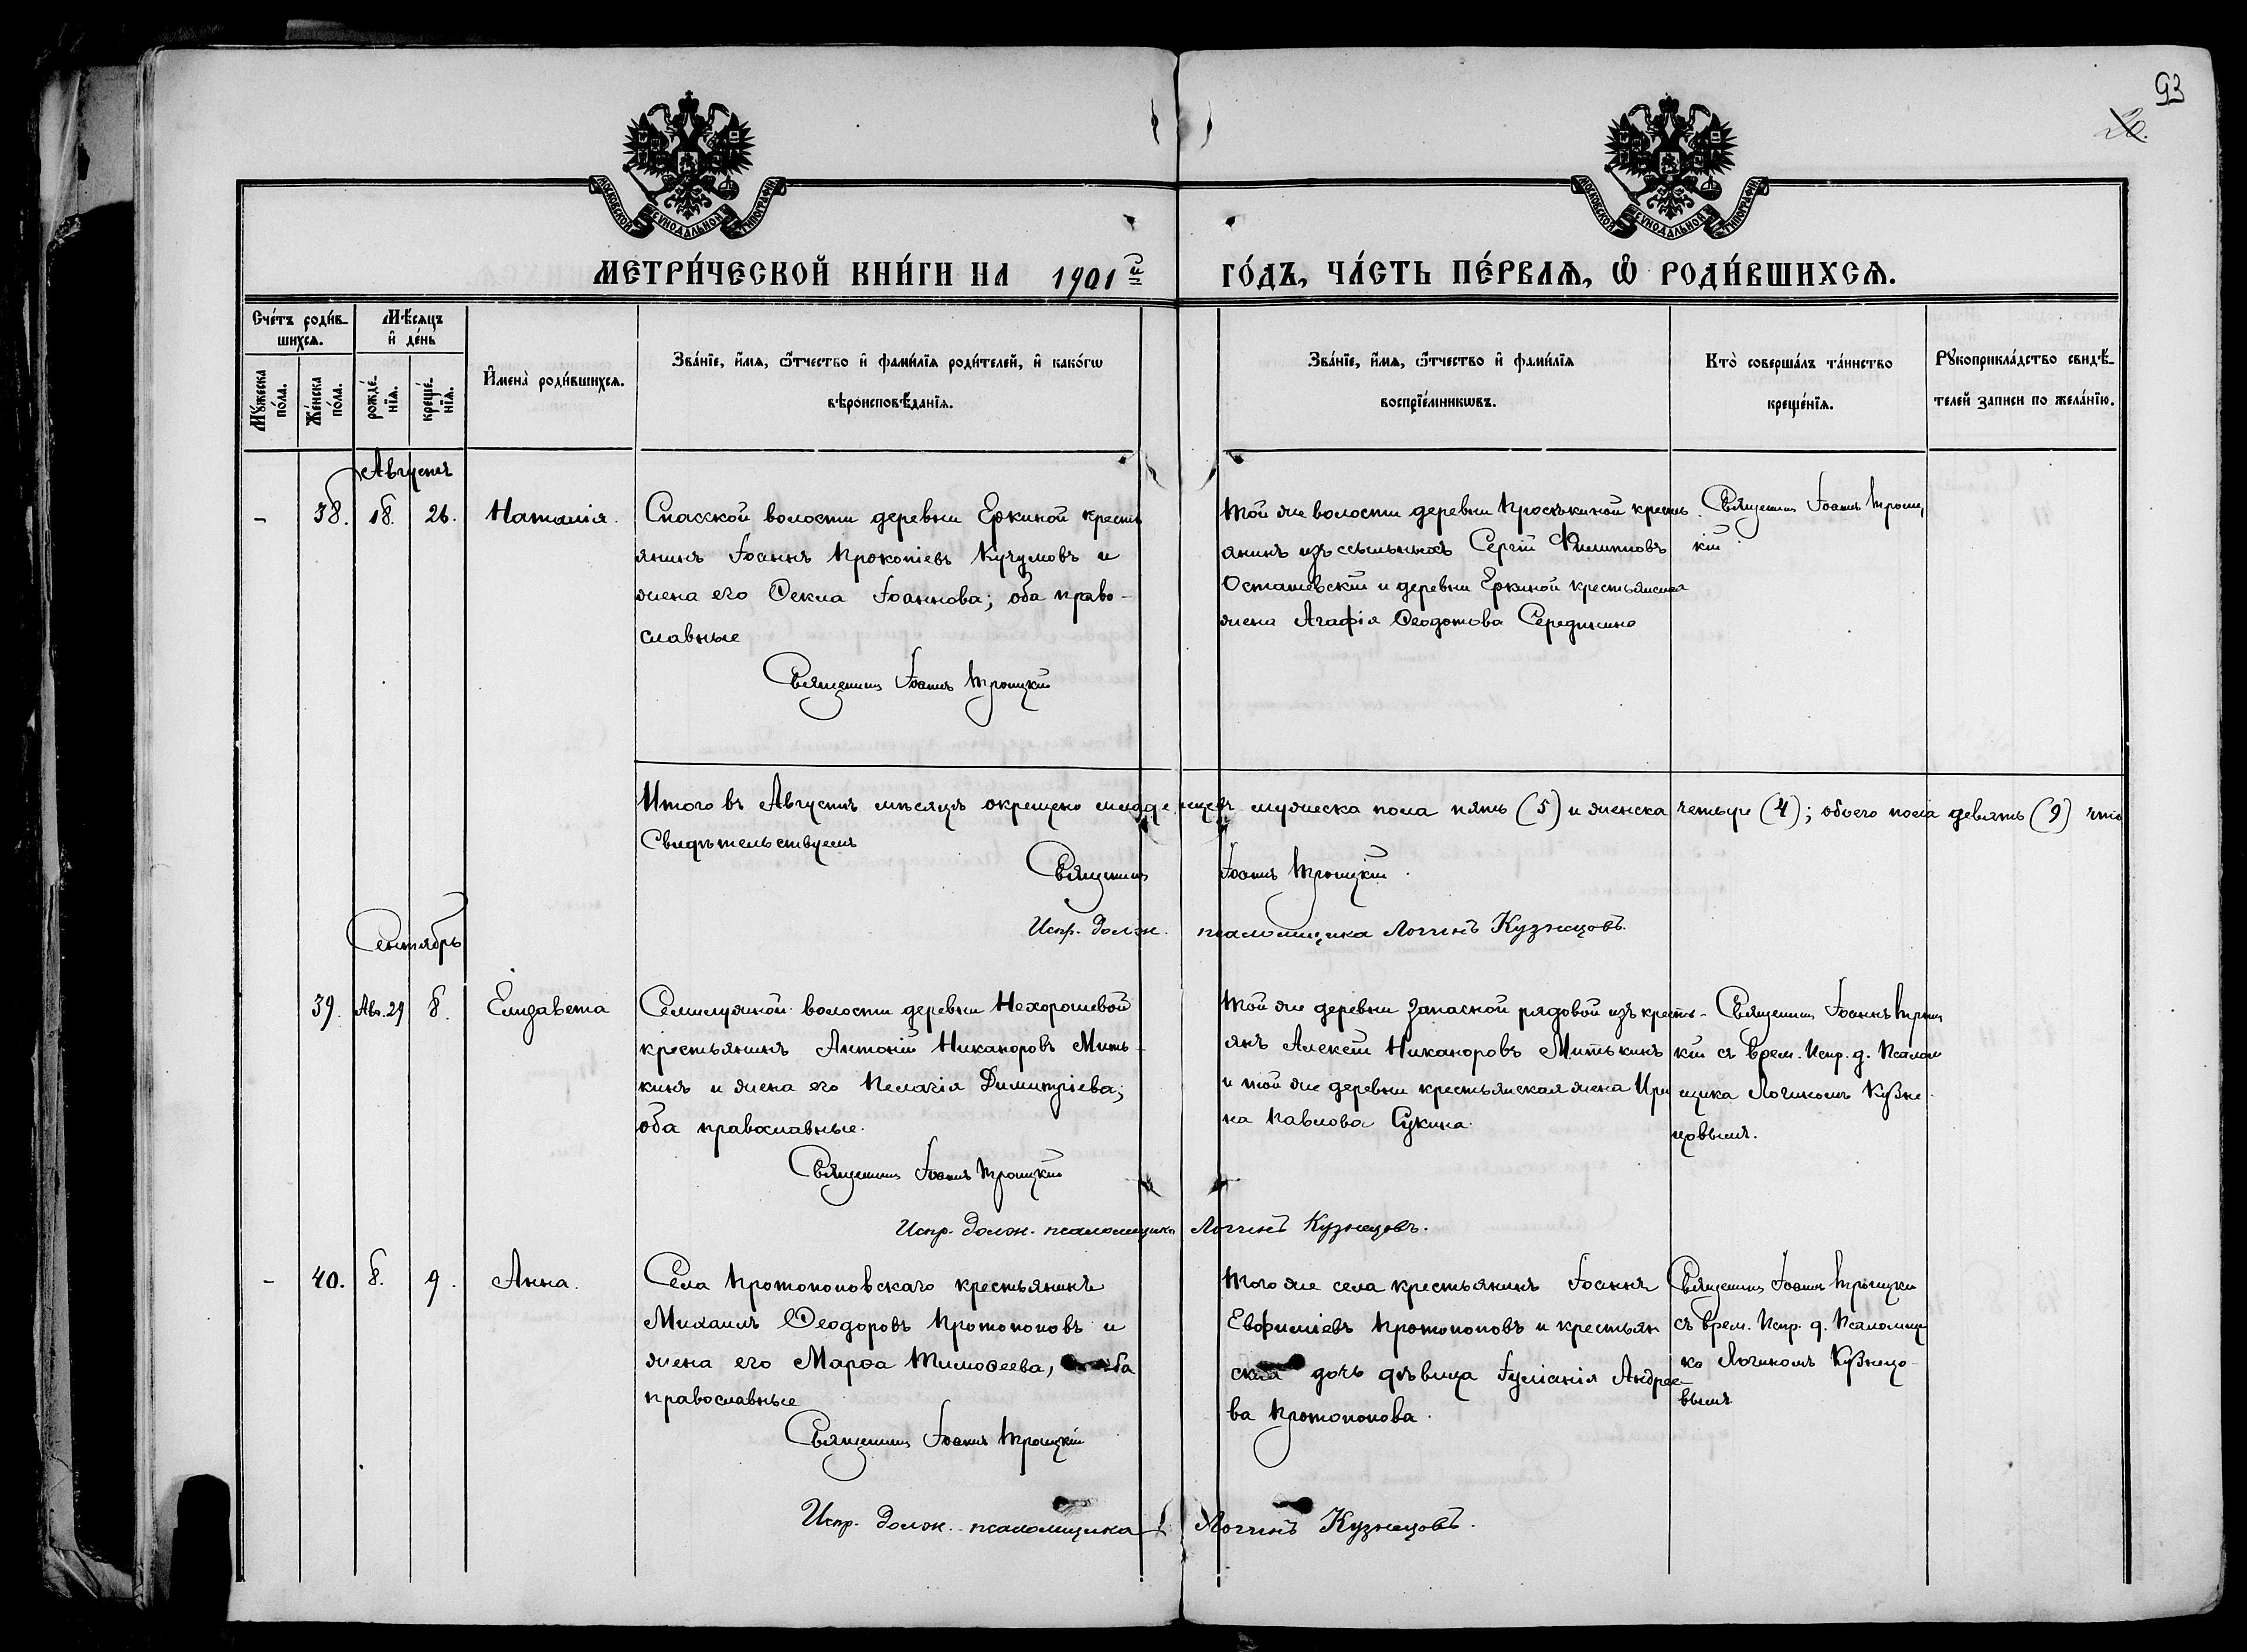 93
20.
МОСКОВСКОЙ СѴНОДАЛЬНОЙ ТИПОГРАФІИ
МОСКОВСКОЙ СѴНОДАЛЬНОЙ ТИПОГРАФІИ
МЕТРИ́ЧЕСКОЙ КНИ́ГИ НА 1901й ГО́ДЪ, ЧА́СТЬ ПЕ́РВАѦ, Ѽ РОДИ́ВШИХСѦ.
Сче́тъ роди́в-
шихсѧ.
Мꙋ́жеска
по́ла.
Же́нска
по́ла.
Мѣ́сѧцъ
и҆ де́нь
рожде́-
нїѧ.
креще́-
нїѧ.
И҆мена̀ роди́вшихсѧ.
Зва́нїе, и҆́мѧ, ѻ҆́тчество и҆ фами́лїѧ роди́телей, и҆ како́гѡ
вѣроисповѣ́данїѧ.
Зва́нїе, и҆́мѧ, ѻ҆́тчество и҆ фами́лїѧ
воспрїе́мникѡвъ.
Кто̀ соверша́лъ та́инство
креще́нїѧ.
Рꙋкоприкла́дство свидѣ́-
телей записи по жела́нїю.
Августъ
-
38.
18.
26.
Наталія.
Спасской волости деревни Еркиной кресть
янинъ Іоаннъ Прокопіевъ Кучумовъ и
жена его Ѳекла Іоаннова; оба право-
славные
Священникъ Іоаннъ Троицкій
Той же волости деревни Проськиной кресть
янинъ изъ ссыльныхъ Сергій Филипповъ
Осташевскій и деревни Еркиной крестьянская
жена Агафія Ѳеодотова Середкина
Священникъ Іоаннъ Троиц
кій
Итого въ Августѣ мѣсяцѣ окрещено младенцевъ мужеска пола пять (5) и женска четыре (4); обоего пола девять (9) что
Свидѣтельствуемъ
Священникъ Іоаннъ Троицкій.
Испр. долж. псаломщика Логинъ Кузнецовъ.
Сентябрь
39.
Авг. 29
8.
Елизавета
Семилужной волости деревни Нехорошевой
крестьянинъ Антоній Никаноровъ Мить-
кинъ и жена его Пелагія Димитріева;
оба православные.
Священникъ Іоаннъ Троицкій
Той же деревни запасной рядовой изъ кресть-
янъ Алексѣй Никаноровъ Митькинъ
и той же деревни крестьянская жена Ири
на Павлова Сукина.
Священникъ Іоаннъ Троиц
кій съ врем. Испр. д. Псалом
щика Логиномъ Кузне-
цовымъ.
Испр. долж. псаломщика Логинъ Кузнецовъ.
-
40.
8.
9.
Анна.
Села Протопоповскаго крестьянинъ
Михаилъ Ѳеодоровъ Протопоповъ и
жена его Марѳа Тимоѳеева, оба
православные
Священникъ Іоаннъ Троицкій
Того же села крестьянинъ Іоаннъ
Евфиміевъ Протопоповъ и крестьян
ская дочь дѣвица Іуліанія Андрее-
ва Протопопова.
Священникъ Іоаннъ Троицкій
съ врем. Испр. д. Псаломщи
ка Логиномъ Кузнецо-
вымъ
Испр. долж. псаломщика Логинъ Кузнецовъ.